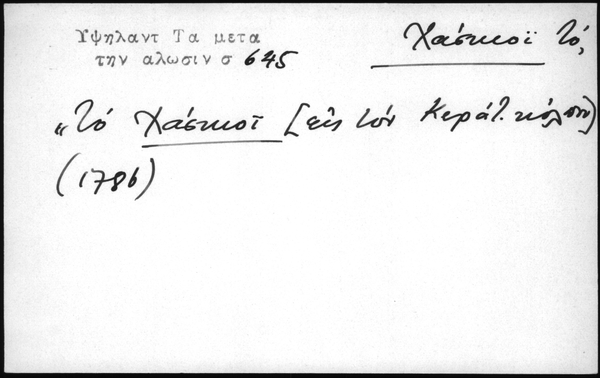 Υψηλαντ Τα μετα
την αλωσιν σ 645
Χάσκιοϊ τό,
"Τό Χάσκιοϊ [είς τόν Κεράτ. κόλπον)
(1786)